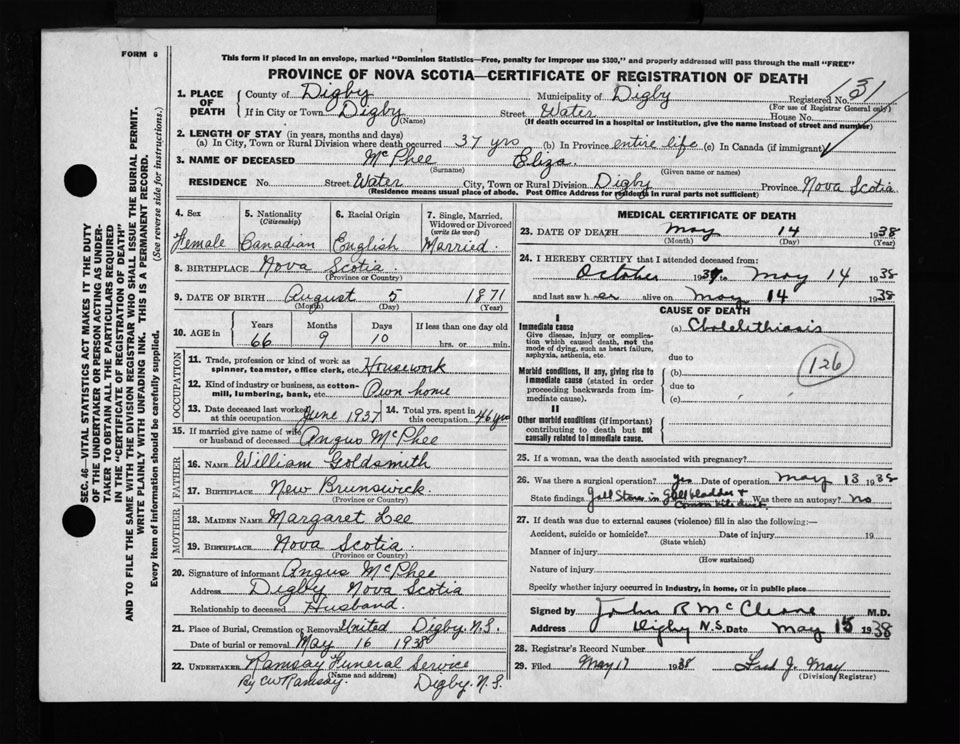 FORM 6
This form if placed in an envelope, marked "Dominion Statistics—Free, penalty for improper use $300," and properly addressed will pass through the mail "FREE"
PROVINCE OF NOVA SCOTIA—CERTIFICATE OF REGISTRATION OF DEATH
SEC. 46—VITAL STATISTICS ACT MAKES IT THE DUTY
OF THE UNDERTAKER OR PERSON ACTING AS UNDER-
TAKER TO OBTAIN ALL THE PARTICULARS REQUIRED
IN THE "CERTIFICATE OF REGISTRATION OF DEATH"
AND TO FILE THE SAME WITH THE DIVISION REGISTRAR WHO SHALL ISSUE THE BURIAL PERMIT.
WRITE PLAINLY WITH UNFADING INK. THIS IS A PERMANENT RECORD.
Every item of information should be carefully supplied. (See reverse side for instructions.)
1. PLACE OF DEATH County of Digby Municipality of Digby Registered No. 151
(For use of Registrar General only)
If in City or Town Digby (Name) Street Water House No.
(If death occurred in a hospital or institution, give the name instead of street and number)
2. LENGTH OF STAY (in years, months and days)
(a) In City, Town or Rural Division where death occurred 37 yrs (b) In Province entire life (c) In Canada (if immigrant)
3. NAME OF DECEASED McPhee Eliza.
(Surname) (Given name or names)
RESIDENCE No. Street Water City, Town or Rural Division Digby Province Nova Scotia
(Residence means usual place of abode. Post Office Address for residents in rural parts not sufficient)
4. Sex Female
5. Nationality (Citizenship) Canadian
6. Racial Origin English
7. Single, Married, Widowed or Divorced (write the word) Married.
8. BIRTHPLACE Nova Scotia.
(Province or Country)
9. DATE OF BIRTH August 5 1871
(Month) (Day) (Year)
10. AGE in Years 66 Months 9 Days 10 If less than one day old hrs. or min.
OCCUPATION
11. Trade, profession or kind of work as spinner, teamster, office clerk, etc. Housework
12. Kind of industry or business, as cotton-mill, lumbering, bank, etc. Own home
13. Date deceased last worked at this occupation June 1937 14. Total yrs. spent in this occupation 46 yrs
15. If married give name of wife or husband of deceased Angus McPhee
FATHER
16. NAME William Goldsmith
17. BIRTHPLACE New Brunswick
(Province or Country)
MOTHER
18. MAIDEN NAME Margaret Lee
19. BIRTHPLACE Nova Scotia.
(Province or Country)
20. Signature of informant Angus McPhee
Address Digby Nova Scotia
Relationship to deceased Husband.
21. Place of Burial, Cremation or Removal United Digby. N.S.
Date of burial or removal May 16 1938
22. UNDERTAKER Ramsay Funeral Service
(Name and address)
By CW Ramsay. Digby. N.S.
MEDICAL CERTIFICATE OF DEATH
23. DATE OF DEATH May 14 1938
(Month) (Day) (Year)
24. I HEREBY CERTIFY that I attended deceased from:
October 1937 to May 14 1938
and last saw her alive on May 14 1938
CAUSE OF DEATH
I
Immediate cause
Give disease, injury or complication which caused death, not the mode of dying, such as heart failure, asphyxia, asthenia, etc.
(a) Cholelithiasis
due to
Morbid conditions, if any, giving rise to immediate cause (stated in order proceeding backwards from immediate cause).
(b)
due to
(c)
126
II
Other morbid conditions (if important) contributing to death but not causally related to immediate cause.
25. If a woman, was the death associated with pregnancy?
26. Was there a surgical operation? yes Date of operation May 13 1938
State findings Gall Stones in Gall bladder + Common bile duct. Was there an autopsy? No
27. If death was due to external causes (violence) fill in also the following:—
Accident, suicide or homicide? Date of injury 19
(State which)
Manner of injury
(How sustained)
Nature of injury
Specify whether injury occurred in industry, in home, or in public place
Signed by John R McCleave M.D.
Address Digby N.S. Date May 15 1938
28. Registrar's Record Number
29. Filed May 17 1938 Fred J. May
(Division Registrar)